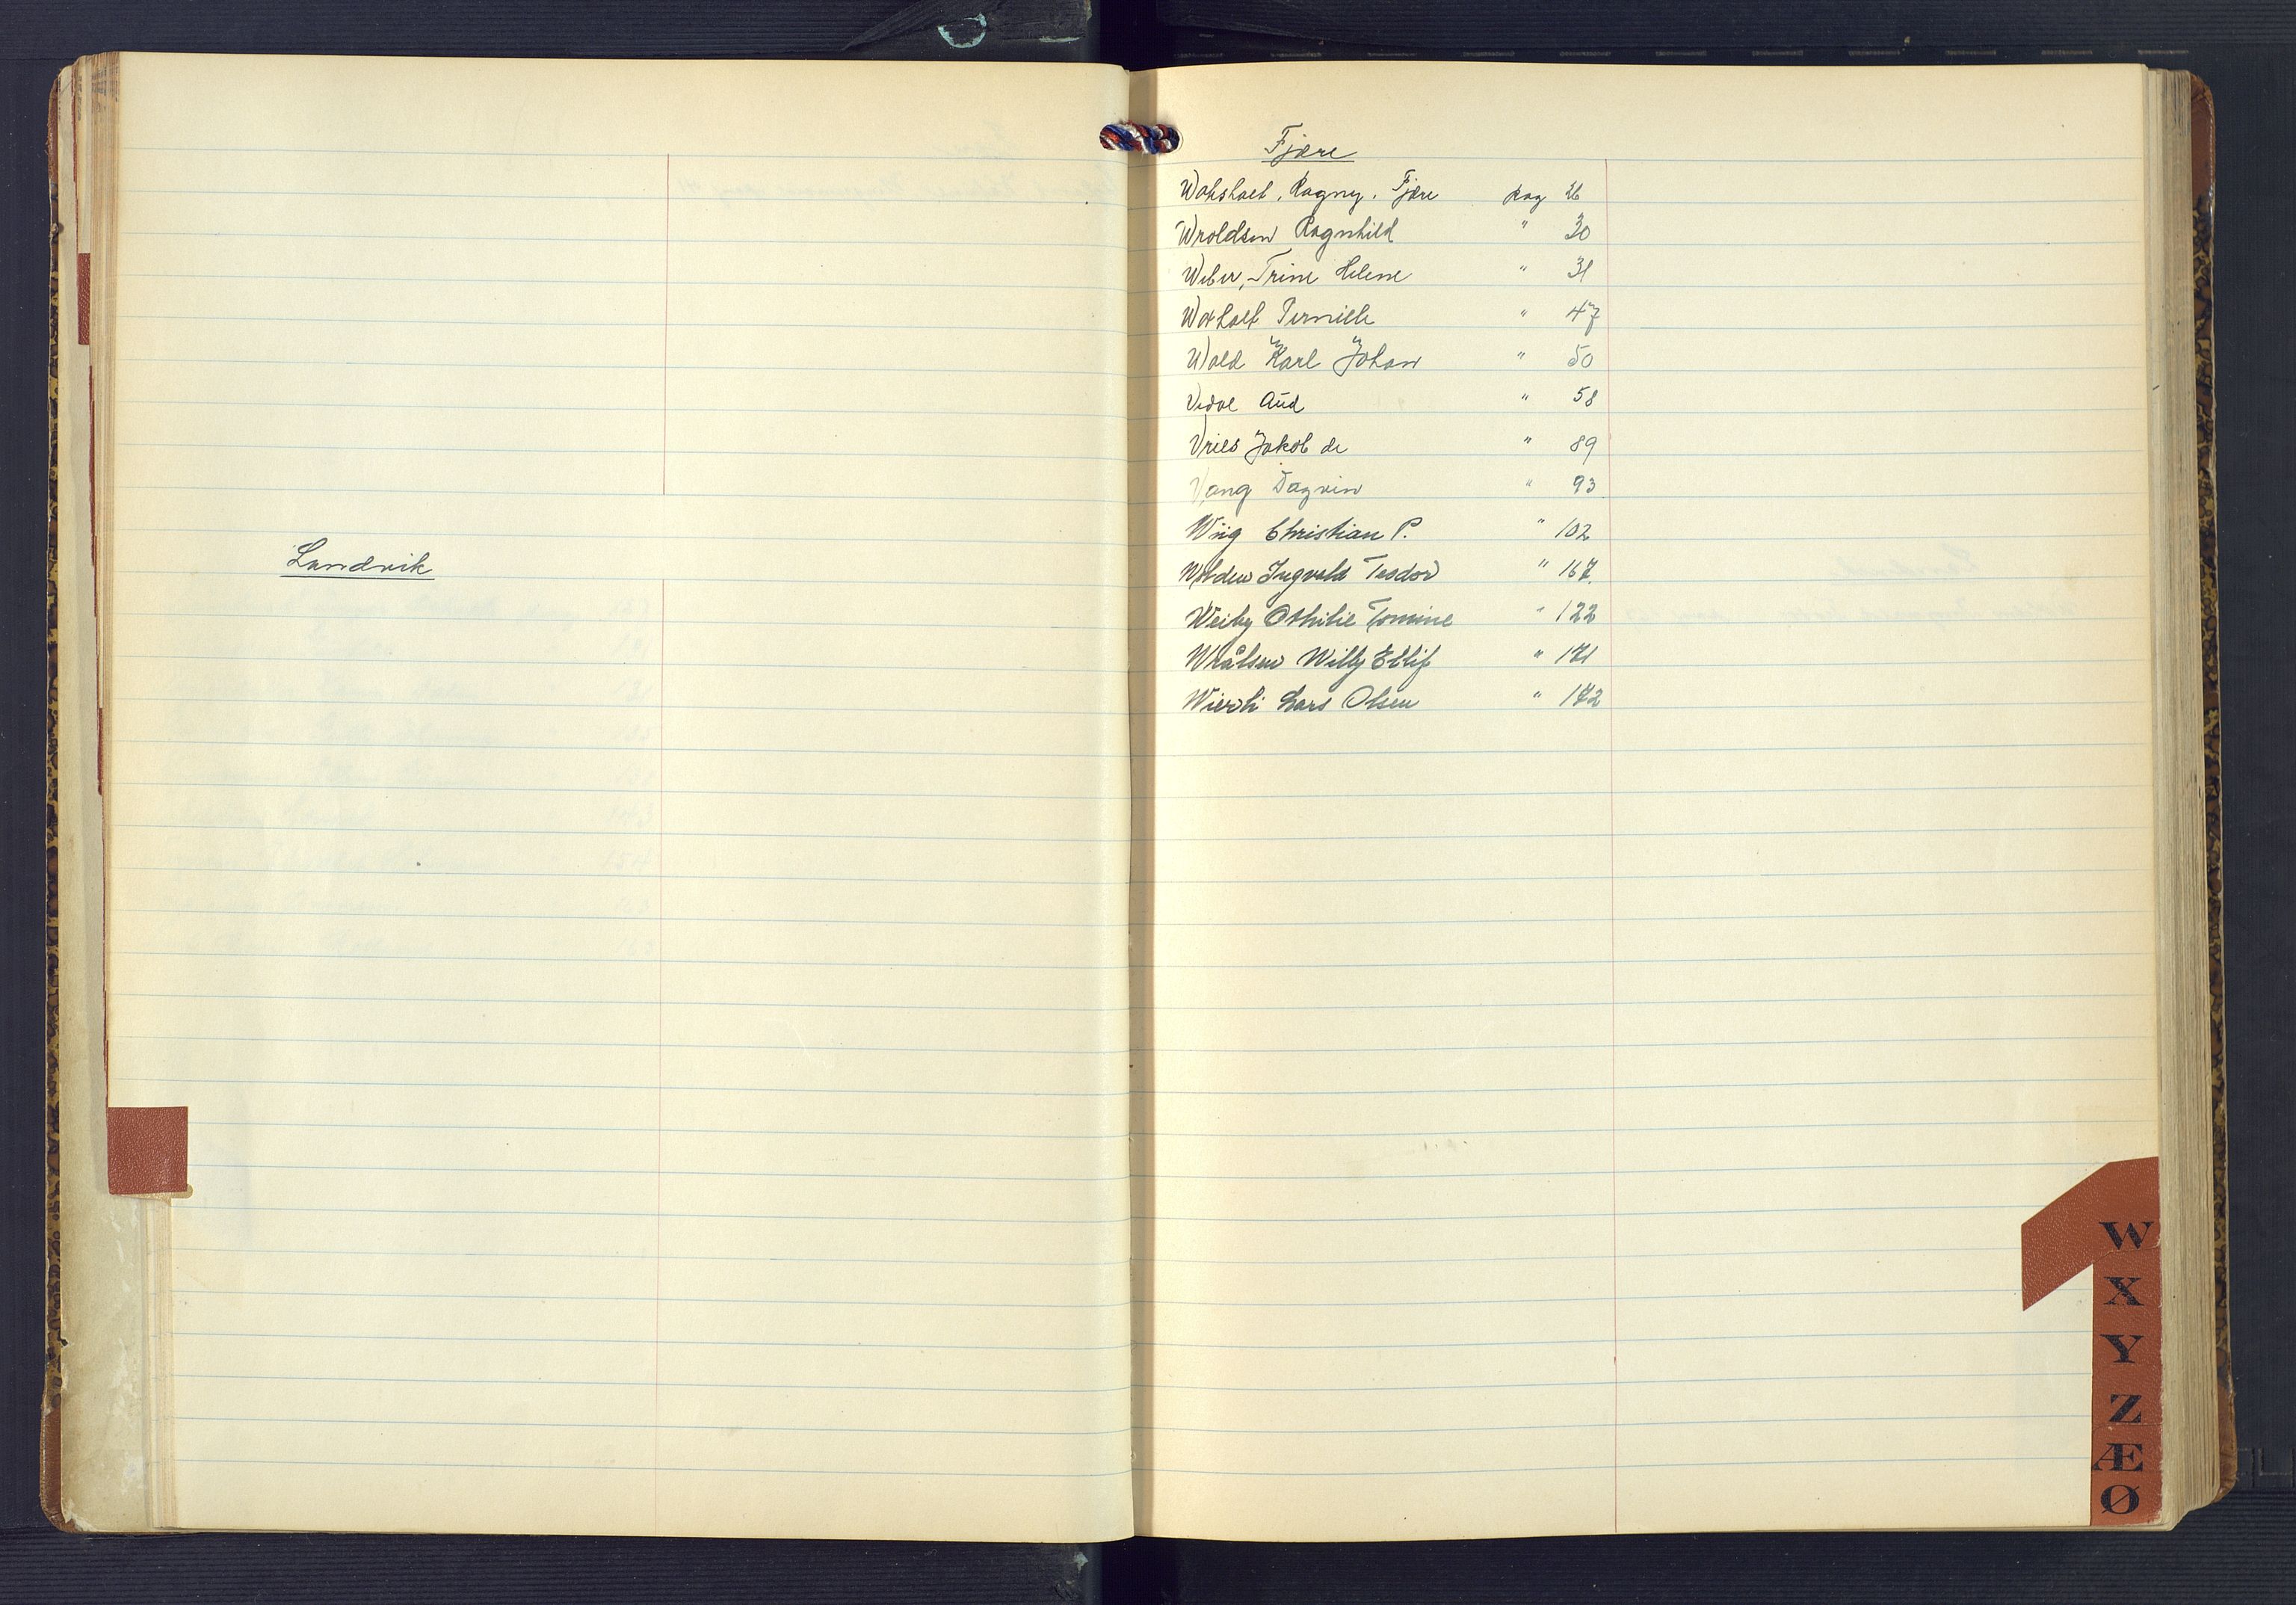 Landvik
Fjære
Ragny, Fjære pag 26
Wroldsen Ragnhild " 30
Weber, Trine Helene " 31
Woxholt Pernille " 47
Wold Karl Johan " 50
Aud " 58
Vries Jakob de " 89
Vang Dagvin " 93
Wiig Christian P. " 102
Wolden Ingvald Teodor " 167
Weiby Othilie Tomine " 122
Wrålsen Willy Ellif " 171
Wierli Lars Olsen " 172
W
X
Y
Z
Æ
Ø